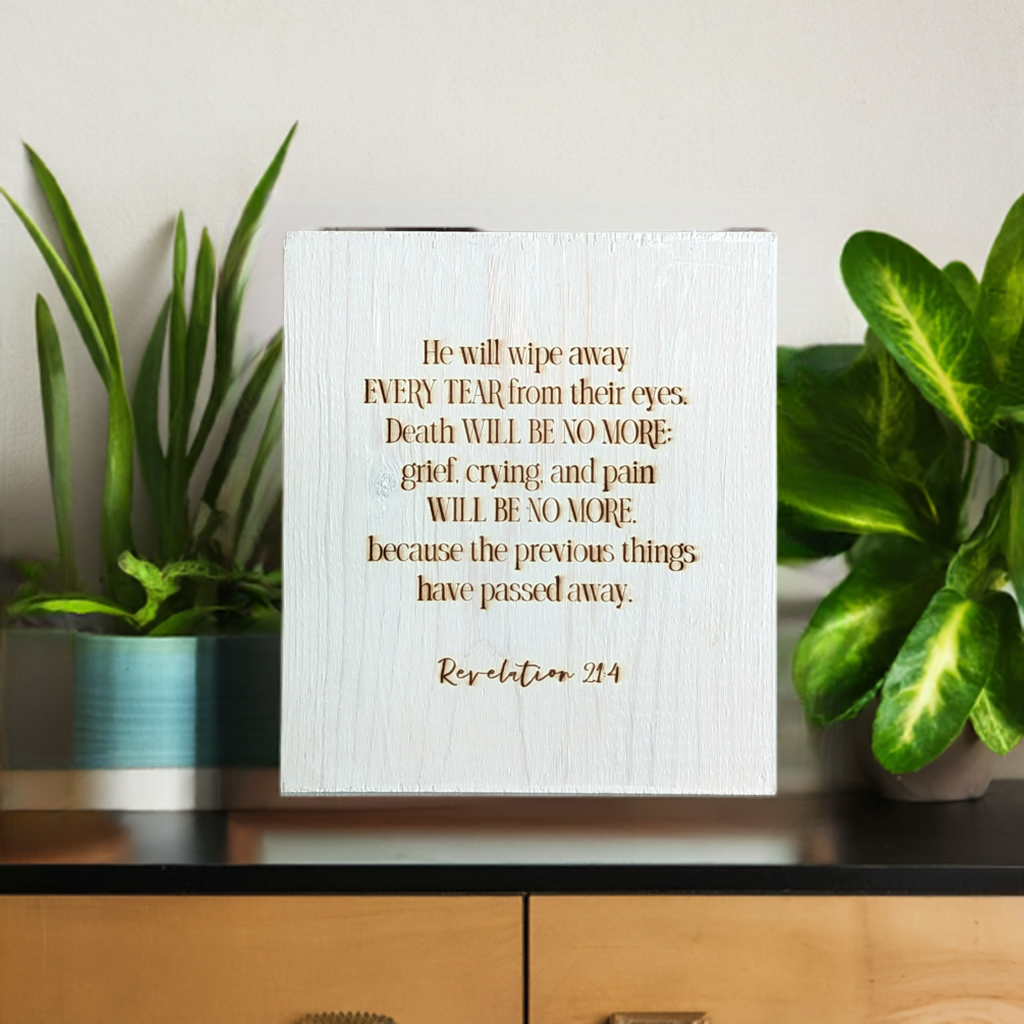 He will wipe away
EVERY TEAR from their eyes.
Death WILL BE NO MORE:
grief, crying, and pain
WILL BE NO MORE,
because the previous things
have passed away.
Revelation 21:4